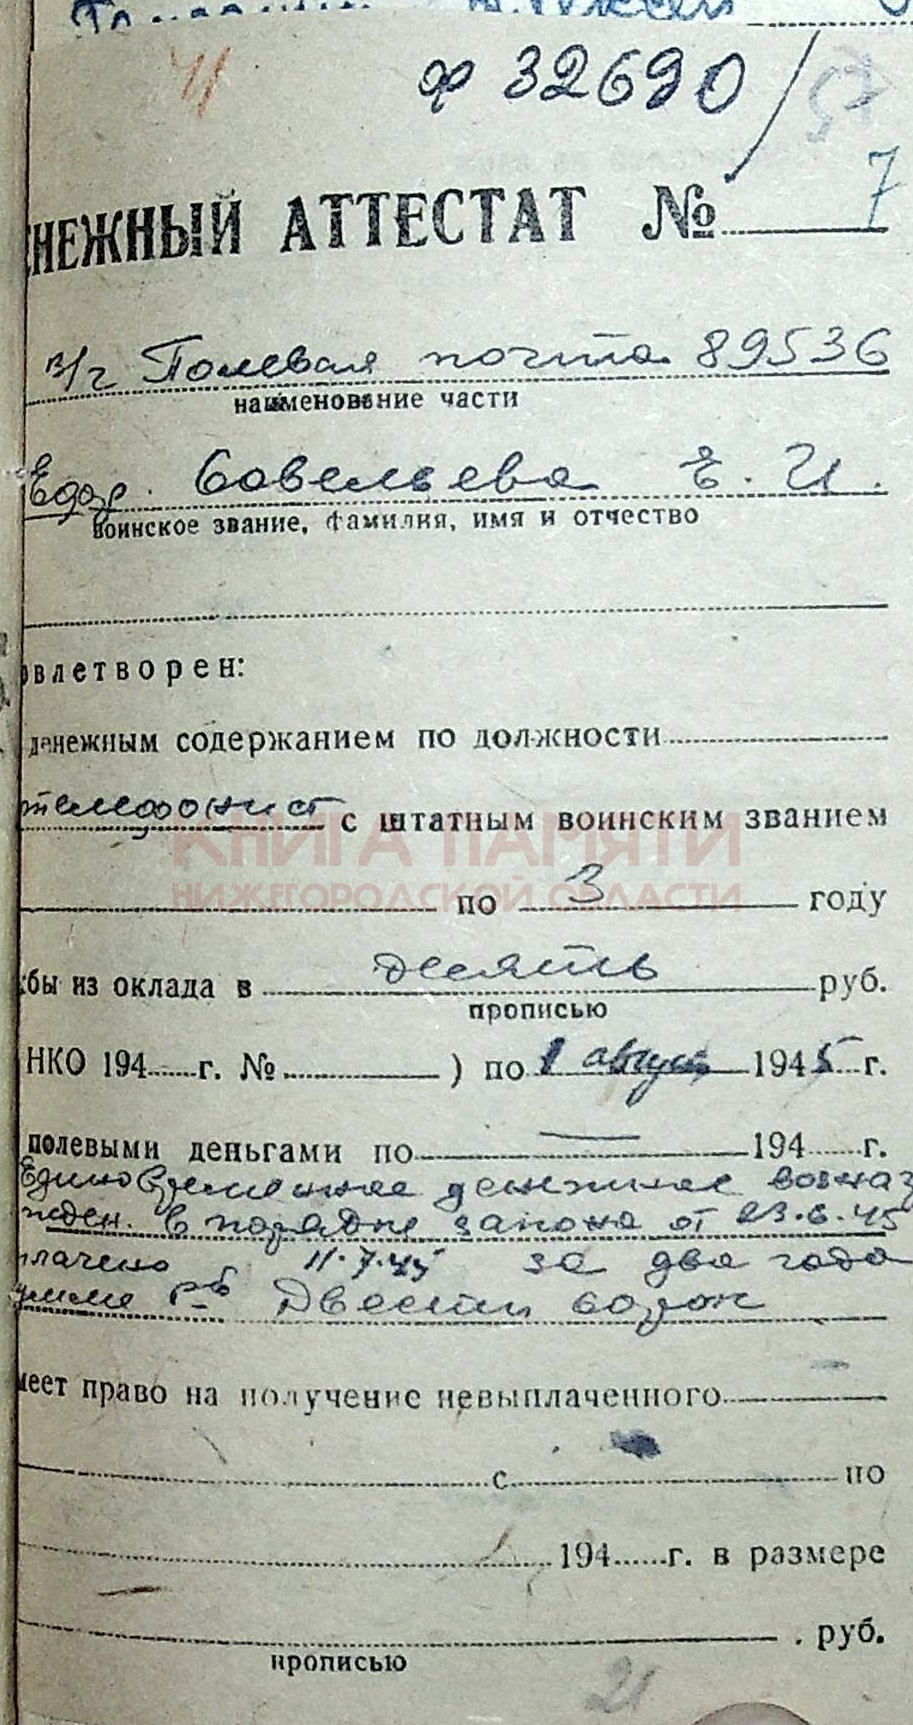 41
ф 32690/
7
НЕЖНЫЙ АТТЕСТАТ №
в/ч Полевая почта 89536
наименование части
Ефр. Савельева Е. И.
воинское звание, фамилия, имя и отчество
овлетворен:
денежным содержанием по должности
телефонист с штатным воинским званием
КНИГА ПАМЯТИ
НИЖЕГОРОДСКОЙ ОБЛАСТИ
по 3 году
бы из оклада в десять руб.
прописью
НКО 194 г. № ) по 1 август 1945 г.
полевыми деньгами по — 194 г.
Единовременное денежное вознаг
жден. в порядке закона от 23.6.45
плачено 11.7.45 за два года
сумме рб Двести сорок
меет право на получение невыплаченного
с по
194 г. в размере
. руб.
прописью
21